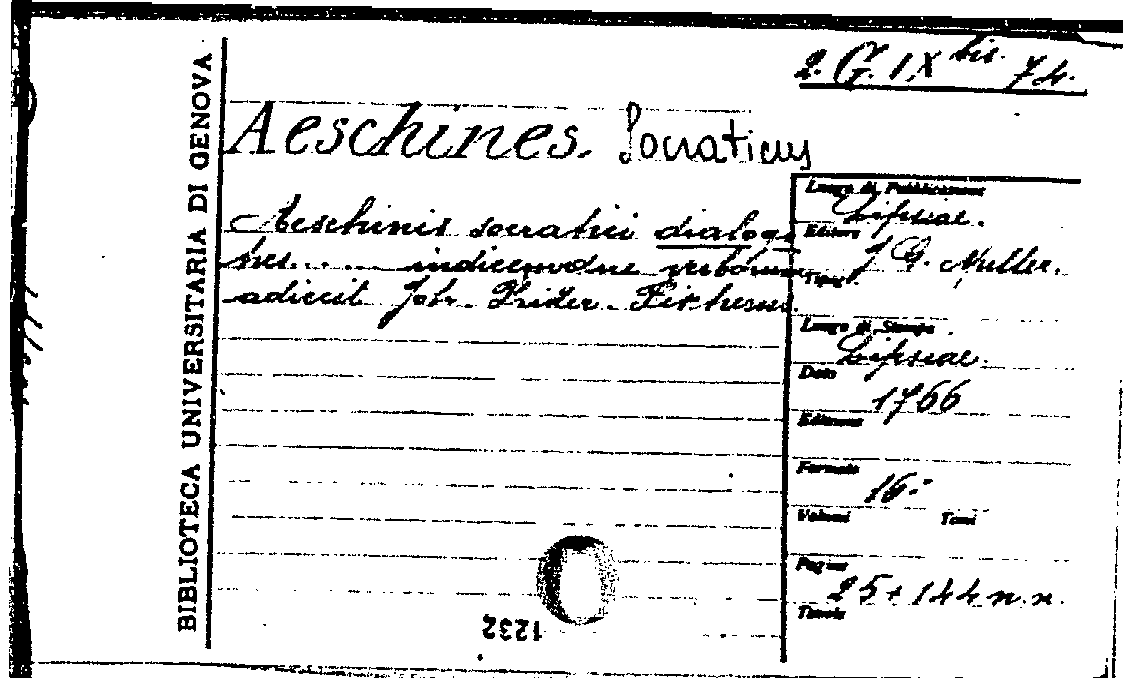 2. G. IX bis. 74.
BIBLIOTECA UNIVERSITARIA DI GENOVA
Aeschines. Socraticus
Aeschinis socratici dialogi
tres.... indicemque verborum
adiecit Joh. Frider. Fischerus.
Luogo di Pubblicazione
Lipsiae.
Editore
J. G. Muller.
Tipogr.
Luogo di Stampa
Lipsiae.
Data
1766
Edizione
Formato
16°
Volumi Tomi
Pagine
25 + 144 n. n.
Tavole
1232